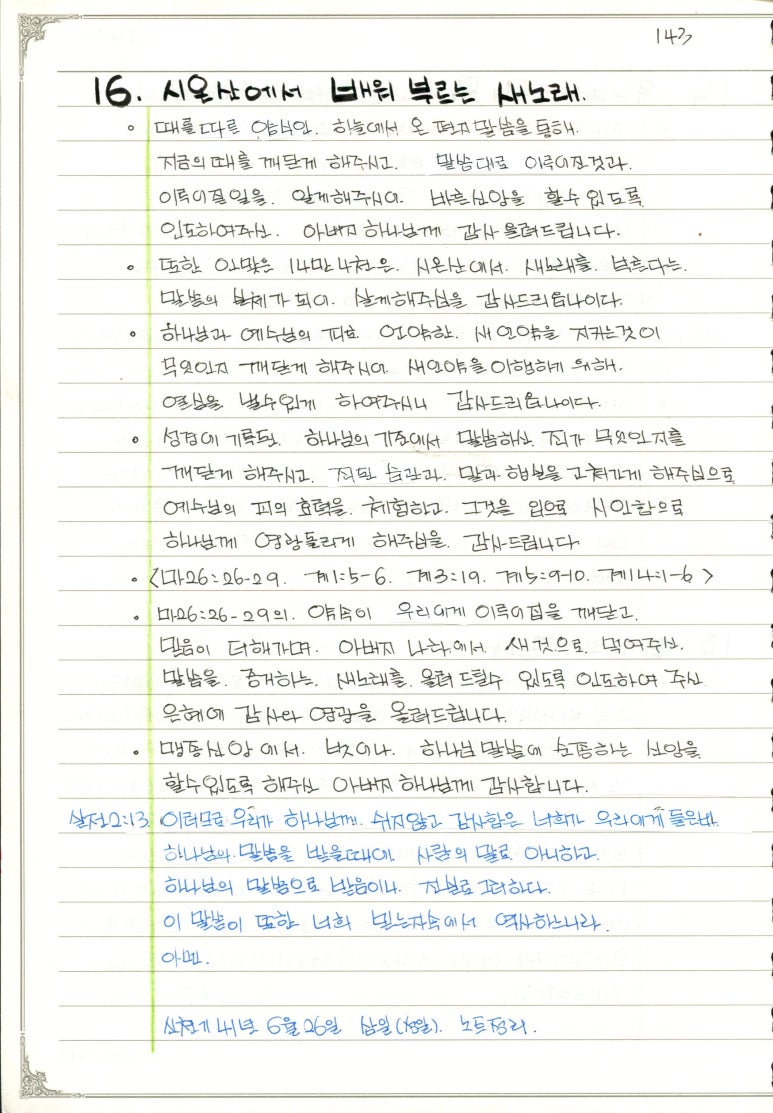 143
16. 시온산에서 배워 부르는 새노래.
◦ 때를따른 양식인. 하늘에서 온 편지말씀을 통해.
지금의 때를 깨닫게 해주시고. 말씀대로 이루어진것과.
이루어질일을. 알게해주시어. 바른신앙을 할수있도록
인도하여주신. 아버지 하나님께 감사 올려드립니다.
◦ 또한 인맞은 14만4천은. 시온산에서. 새노래를. 부른다는.
말씀의 실체가 되어. 살게해주심을 감사드리옵나이다.
◦ 하나님과 예수님의 피로 언약한. 새언약을 지키는것이
무엇인지 깨닫게 해주시어 새언약을이행하기 위해.
열심을 낼수있게 하여주시니 감사드리옵나이다.
◦ 성경에 기록된. 하나님의 기준에서 말씀하신. 죄가 무엇인지를
깨닫게 해주시고. 죄된 습관과. 말과 행실을 고쳐가게 해주심으로
예수님의 피의 효력을. 체험하고. 그것을 입으로 시인함으로
하나님께 영광돌리게 해주심을. 감사드립니다.
◦ <마26:26-29. 계1:5-6. 계3:19. 계5:9-10. 계14:1-6>
◦ 마26:26-29의. 약속이 우리에게 이루어짐을 깨닫고.
믿음이 더해가며. 아버지 나라에서 새것으로 먹여주신.
말씀을. 증거하는. 새노래를. 올려 드릴수 있도록 인도하여 주신.
은혜에 감사와 영광을 올려드립니다.
◦ 맹종신앙에서. 벗어나. 하나님 말씀에 순종하는 신앙을
할수있도록 해주신 아버지 하나님께 감사합니다.
살전2:13 이러므로 우리가 하나님께. 쉬지않고 감사함은 너희가 우리에게 들은바.
하나님의. 말씀을 받을때에 사람의 말로 아니하고.
하나님의 말씀으로 받음이니. 진실로 그러하다.
이 말씀이 또한 너희 믿는자속에서 역사하느니라.
아멘.
신천기 41년 6월 26일 삼일(성일). 노트정리.